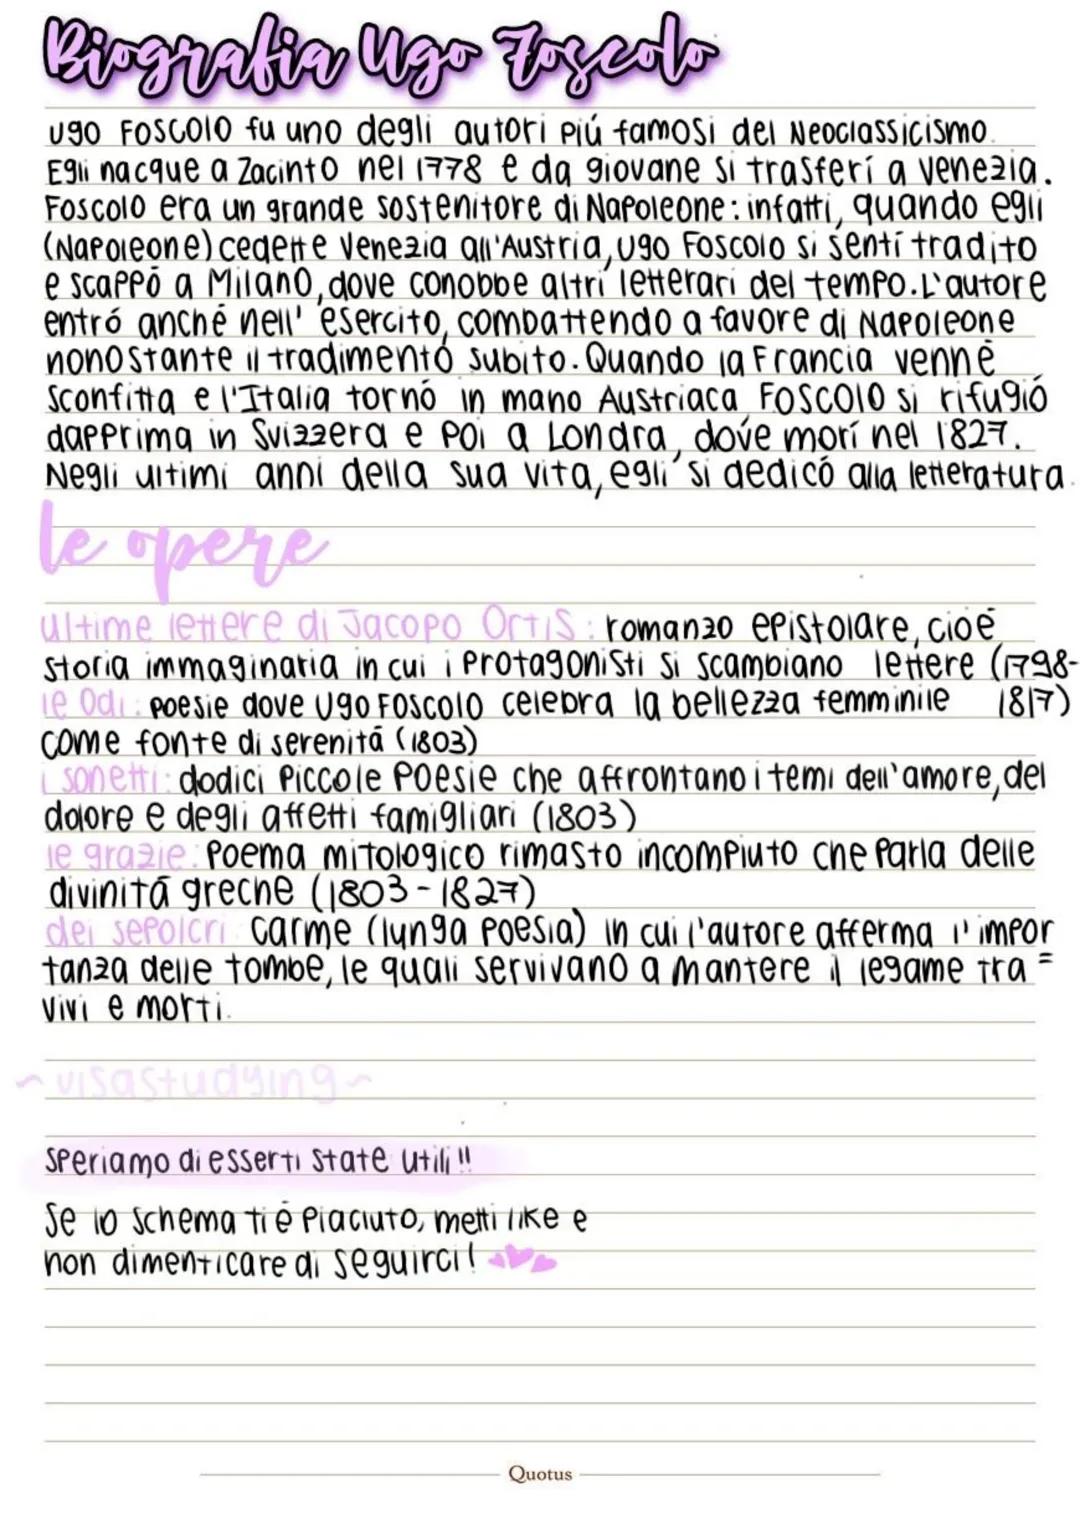 Biografia Ugo Foscolo
Ugo Foscolo fu uno degli autori piú famosi del Neoclassicismo.
Egli nacque a Zacinto nel 1778 e da giovane si trasferí a Venezia.
Foscolo era un grande sostenitore di Napoleone: infatti, quando egli
(Napoleone) cedette Venezia all'Austria, Ugo Foscolo si sentí tradito
e scappó a Milano, dove conobbe altri letterari del tempo. L'autore
entró anche nell' esercito, combattendo a favore di Napoleone
nonostante il tradimento subito. Quando la Francia venne
sconfitta e l'Italia tornó in mano Austriaca Foscolo si rifugió
dapprima in Svizzera e poi a Londra, dove morí nel 1827.
Negli ultimi anni della sua vita, egli si dedicó alla letteratura.
le opere
ultime lettere di Jacopo Ortis: romanzo epistolare, cioé
storia immaginaria in cui i protagonisti si scambiano lettere (1798-
le Odi: poesie dove Ugo Foscolo celebra la bellezza femminile 1817)
come fonte di serenitá (1803)
i sonetti: dodici piccole poesie che affrontano i temi dell'amore, del
dolore e degli affetti famigliari (1803)
le grazie: poema mitologico rimasto incompiuto che parla delle
divinitá greche (1803-1827)
dei sepolcri: carme (lunga poesia) in cui l'autore afferma l'impor
tanza delle tombe, le quali servivano a mantere il legame tra =
vivi e morti.
~visastudying~
speriamo di esserti state utili!!
Se lo schema ti é piaciuto, metti like e
non dimenticare di seguirci!
Quotus